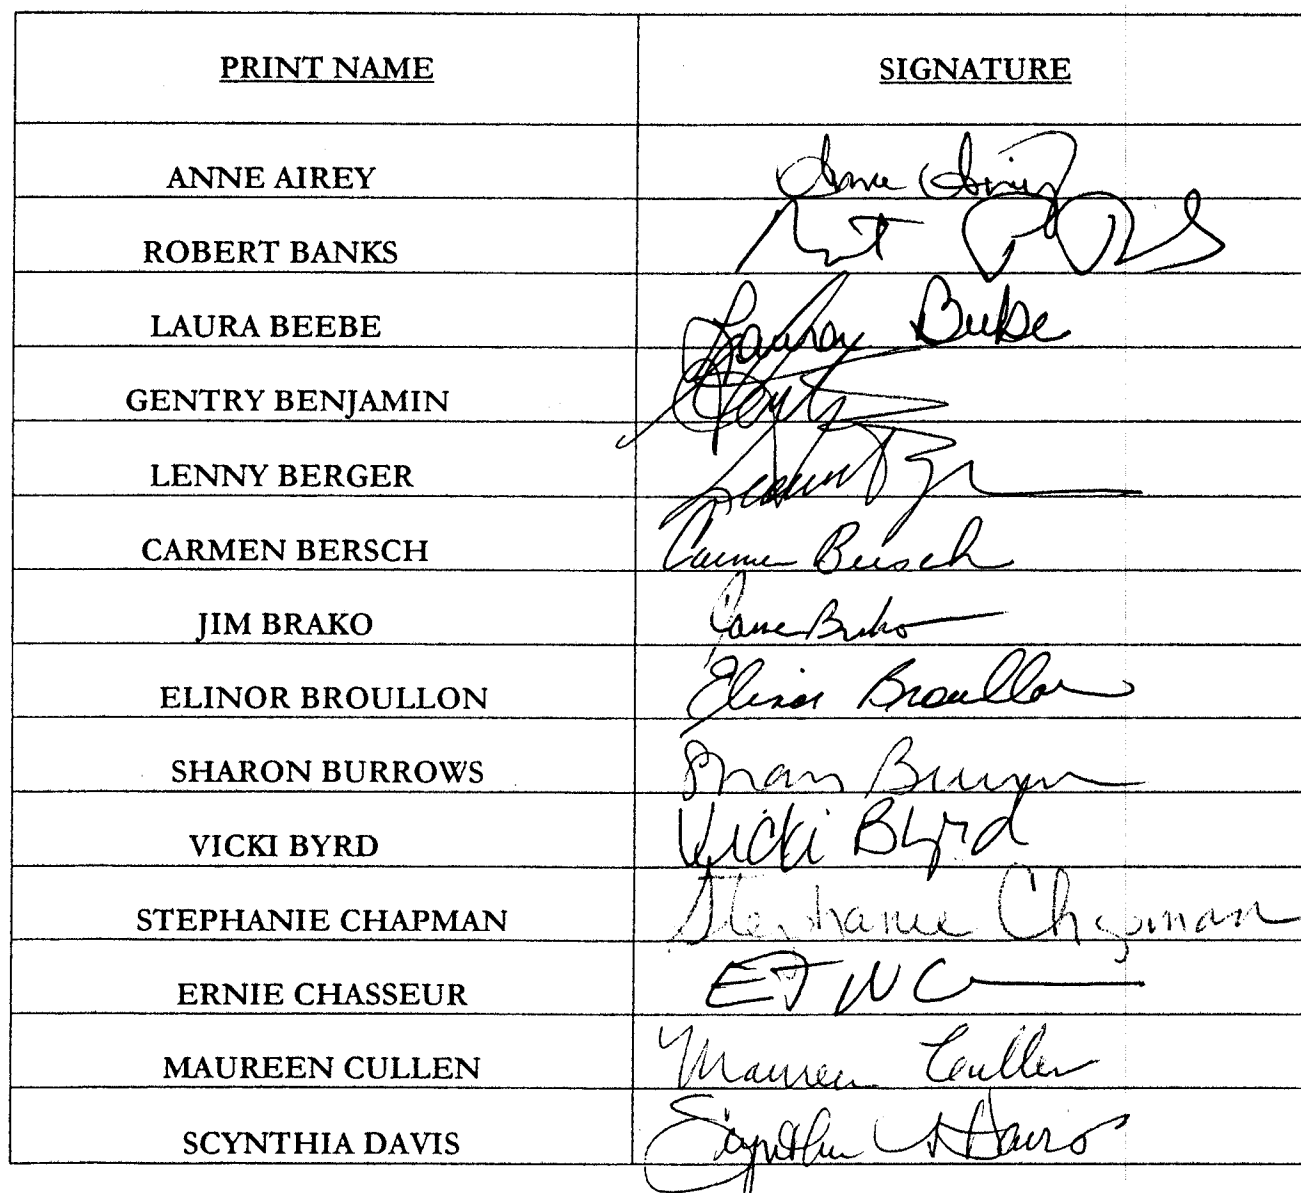 PRINT NAME SIGNATURE
ANNE AIREY Anne Airey
ROBERT BANKS
LAURA BEEBE Laura Beebe
GENTRY BENJAMIN
LENNY BERGER
CARMEN BERSCH Carmen Bersch
JIM BRAKO Brako
ELINOR BROULLON Elinor Broullon
SHARON BURROWS Sharon
VICKI BYRD Vicki Byrd
STEPHANIE CHAPMAN Stephanie Chapman
ERNIE CHASSEUR
MAUREEN CULLEN Maureen Cullen
SCYNTHIA DAVIS Scynthia Davis